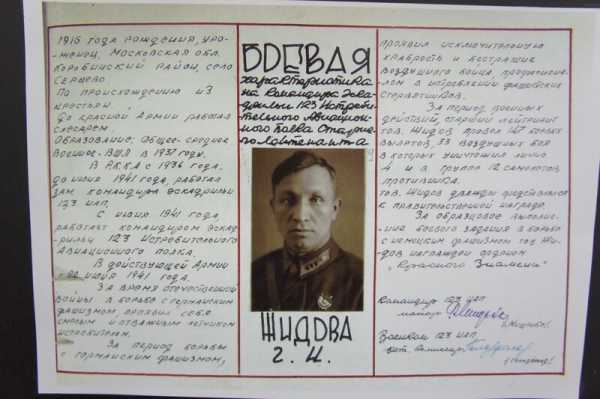 1916 года рождения, уро-
женец, Московская обл.
Коробинский район, село
Сершево
По происхождению из
крестьян
До красной Армии работал
слесарем.
Образование: Общее-среднее
Военное-ВШЛ в 1937 году.
В РККА с 1936 года.
до июня 1941 года, работал
зам. командира эскадрильи
123 ИАП.
С июня 1941 года,
работает командиром эскад-
рильи 123 Истребительного
Авиационного полка.
В действующей Армии
с 22 июня 1941 года.
За время отечественной
войны в борьбе с германским
фашизмом, проявил себя
смелым и отважным летчиком
истребителем.
За период борьбы
с германским фашизмом,
БОЕВАЯ
характеристика
на командира Эска-
дрильи 123 Истреби-
тельного Авиацион-
ного полка Старше-
го Лейтенанта
ЖИДОВА
Г. Н.
проявил исключительную
храбрость и бесстрашие
воздушного бойца,
в истреблении фашистских
стервятников.
За период военных
действий, старший лейтенант
тов. Жидов провел 147 боевых
вылетов, 33 воздушных боя
в которых уничтожил лично
4 и в группе 12 самолетов
противника.
тов. Жидов дважды представлялся
к правительственной награде.
За образцовое выполне-
ние боевого задания в борьбе
с немецким фашизмом тов Жи-
дов награжден орденом
"Красного Знамени"
Командир 123 ИАП
майор
Военком 123 ИАП.
бат. комиссар